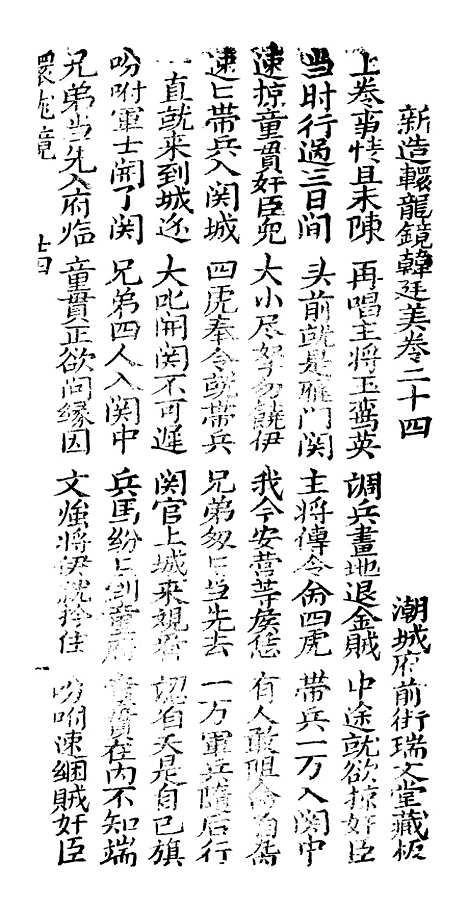 新造轘龍鏡韓廷美卷二十四　潮城府前街瑞文堂藏板
上卷事情且未陳　再唱主將玉鸞英　調兵畫地退金賊　中途就欲掠奸臣
当时行過三日間　頭前就是雁门関　主將傳令命四虎　帶兵一万入関中
速掠童貫奸臣免　大小尽拏勿饒伊　我今安营等候恁　有人敢阻命
速々帶兵入関城　四虎奉令就帶兵　兄弟匆々当先去　一万軍兵隨后行
一直就来到城近　大叱開関不可遲　関官上城来視看　認白天是自己旗
吩咐軍士開了関　兄弟四人入関中　兵馬紛々到童府　童貫在內不知端
兄弟当先入府臨　童貫正欲问緣因　文䧺將伊就拎住　吩咐速綑賊奸臣
轘龍鏡　廿四